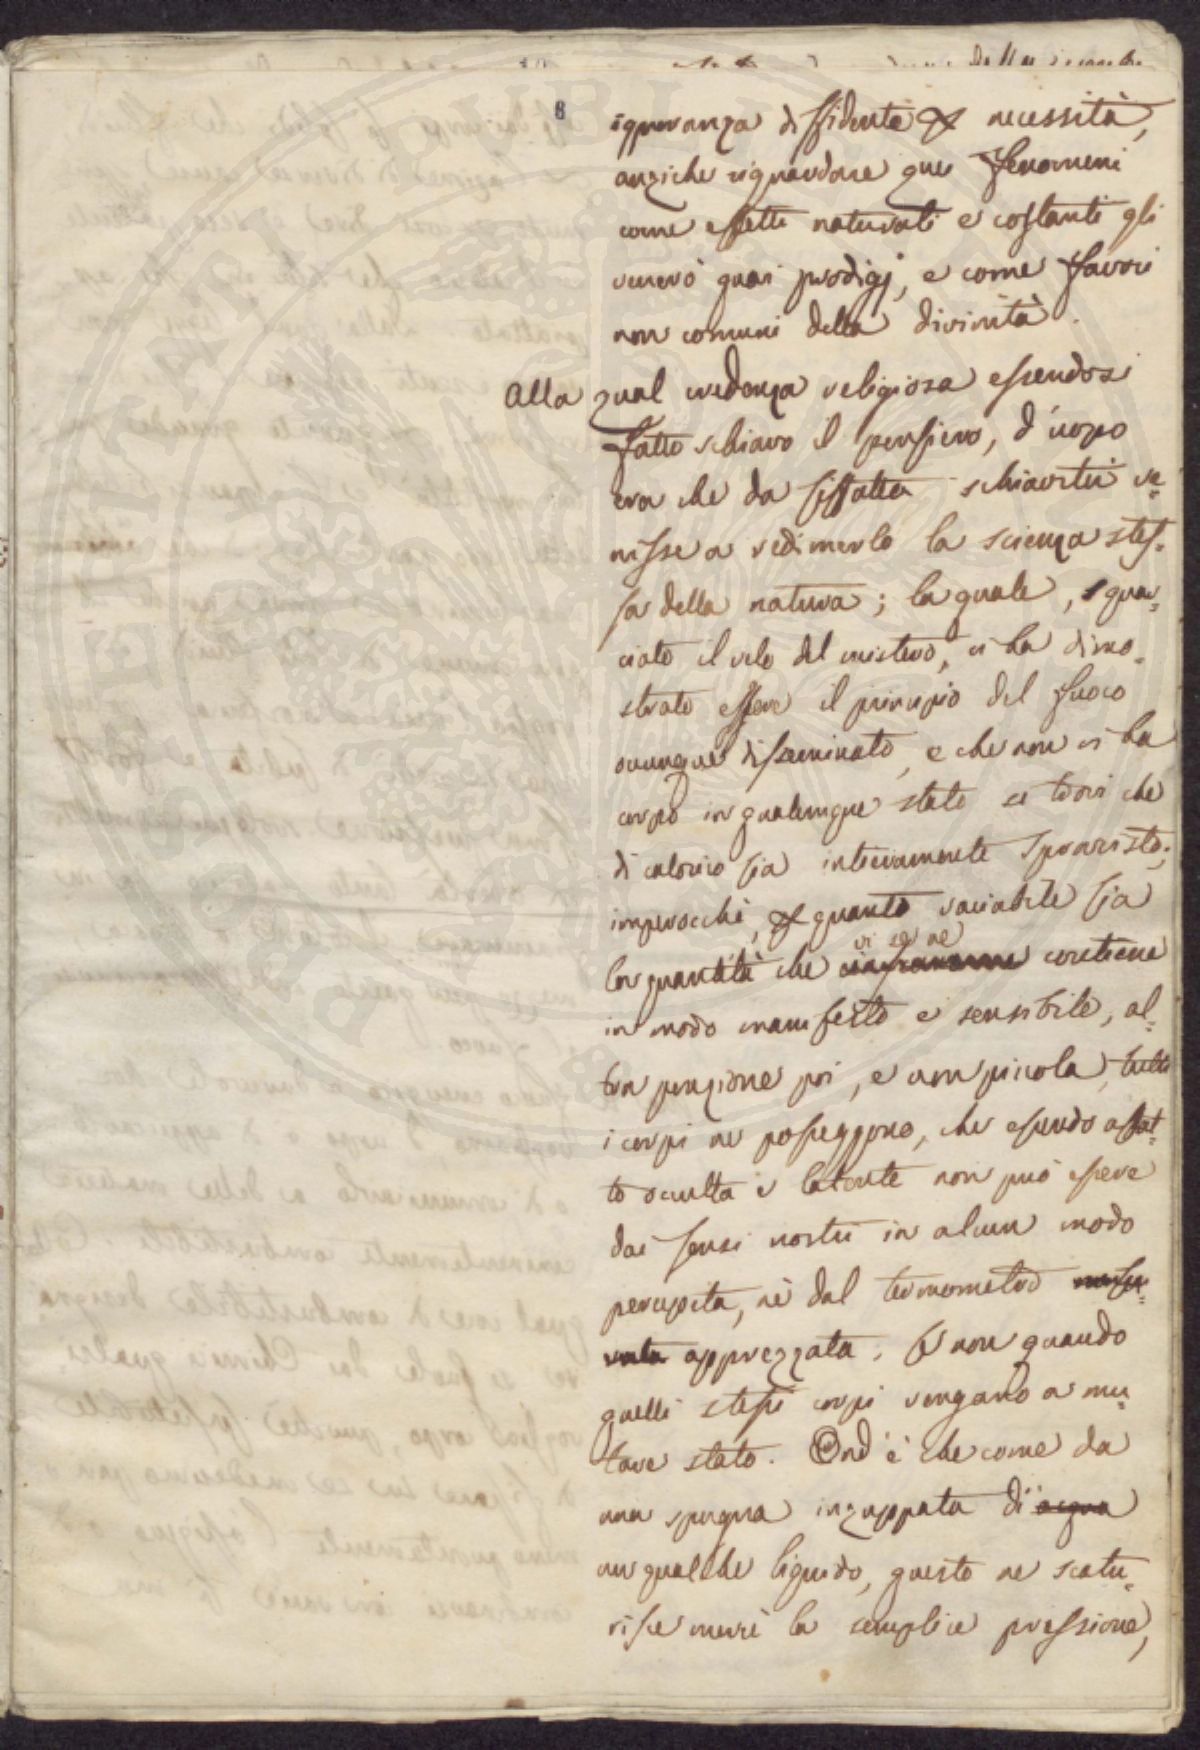 8
ignoranza diffidente x necessità,
anziche riguardare que' fenomeni
come effetti naturali e costanti gli
venerò quai prodigj, e come favori
non comuni della divinità.
Alla qual credenza religiosa essendosi
fatto schiavo il pensiero, d'uopo
era che da siffatta schiavitù ve=
nisse a redimerlo la scienza stes=
sa della natura; la quale, squar=
ciato il velo del mistero, ci ha dimo=
strato essere il principio del fuoco
ovunque disseminato, e che non vi ha
corpo in qualunque stato si trovi che
di calorico sia intieramente sprovvisto;
imperocchè, x quanto variabile sia
vi se ne
la quantità che contiene
in modo manifesto e sensibile, al=
tra porzione poi, e non piccola, tutti
i corpi ne posseggono, che essendo affat=
to occulta e latente non può essere
dai sensi nostri in alcun modo
percepita, nè dal termometro misu=
rata apprezzata, se non quando
quelli stessi corpi vengano a mu=
tare stato. Ond'è che come da
una spugna inzuppata di acqua
un qualche liquido, questo ne scatu=
risce mercè la semplice pressione,
PUBLIC